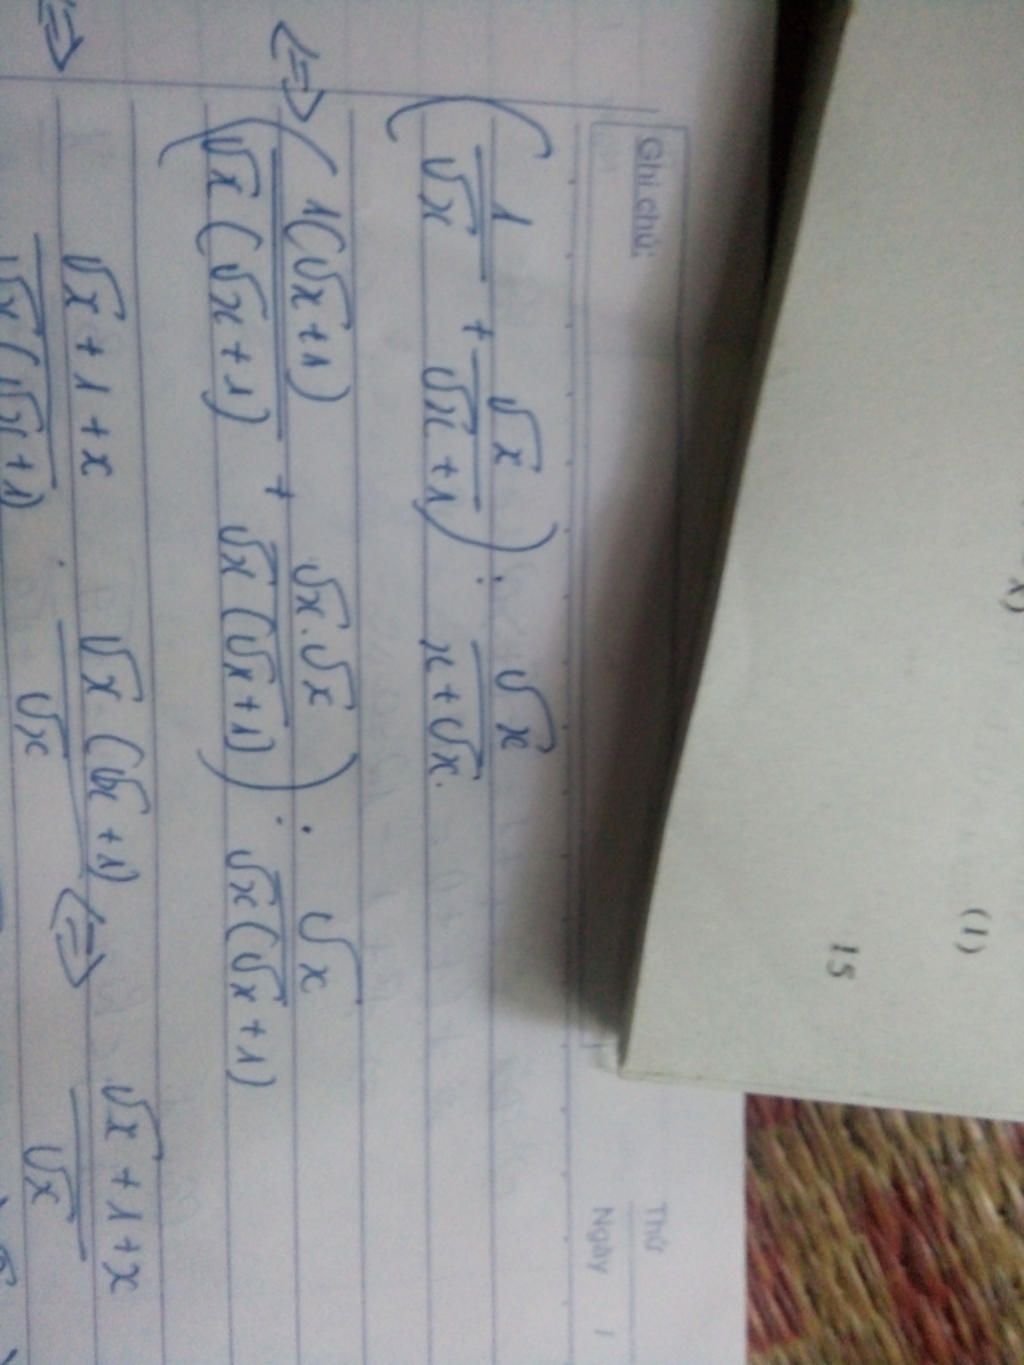 Ghi chú:
Thứ
Ngày /
(1/√x + √x/(√x+1)) : √x/(x+√x).
<=> (1(√x+1)/(√x(√x+1)) + √x.√x/(√x(√x+1))) : √x/(√x(√x+1))
<=> (√x+1+x)/(√x(√x+1)) . √x(√x+1)/√x <=> (√x+1+x)/√x
x)
(1)
15